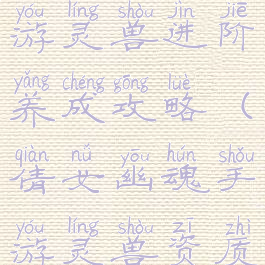 yóu líng shòu jìn jiē
游灵兽进阶
yǎng chéng gōng lüè
养成攻略（
qiàn nǚ yōu hún shǒu
倩女幽魂手
yóu líng shòu zī zhì
游灵兽资质